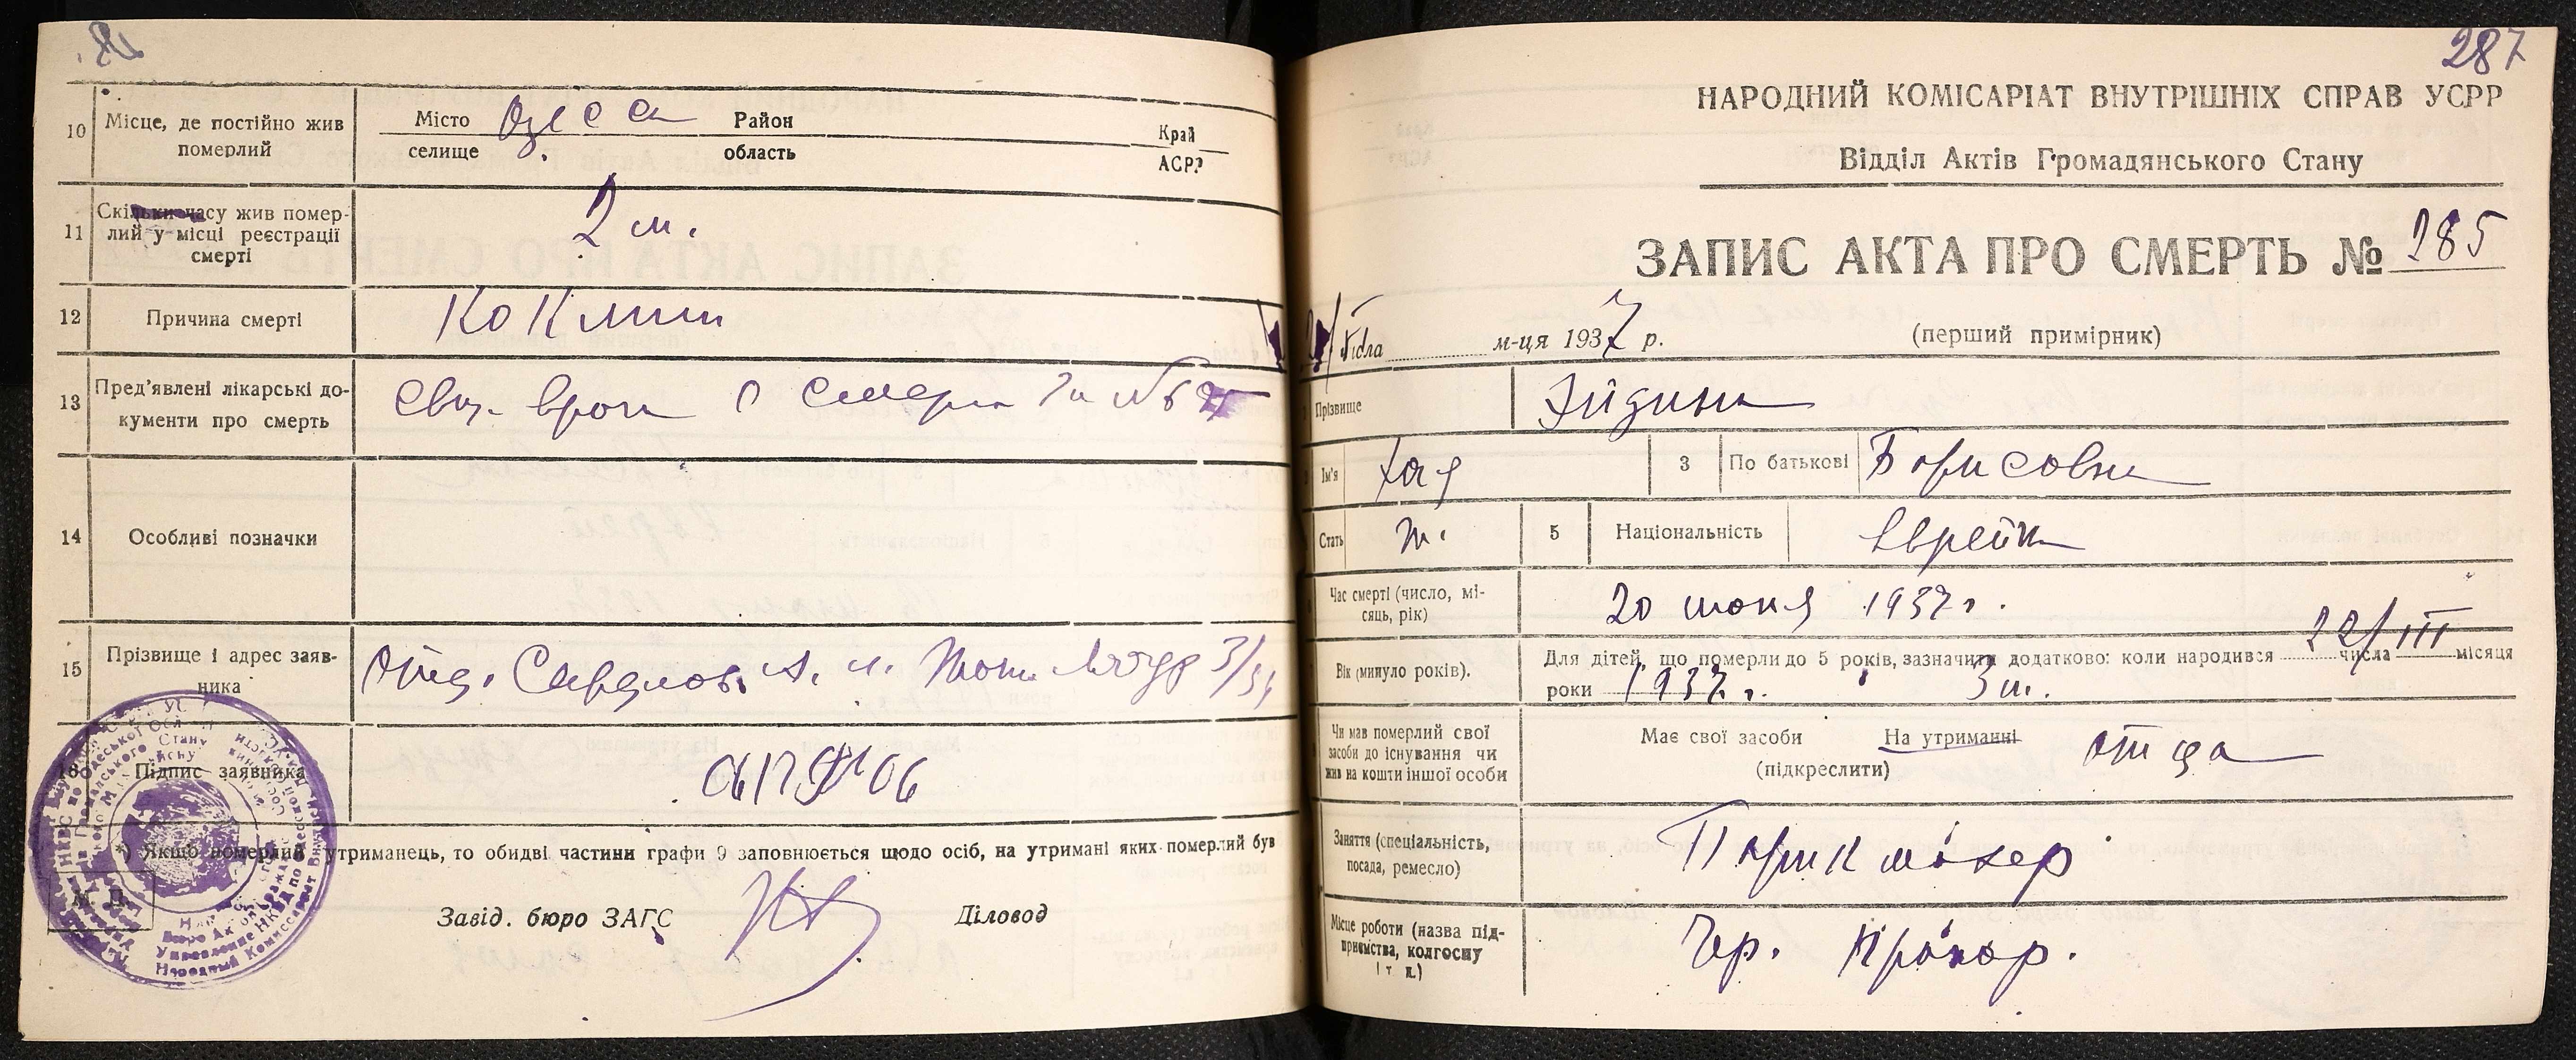 10 Місце, де постійно жив померлий
Місто Одесса Район Край
селище область АСРР
11 Скільки часу жив помер-
лий у місці реєстрації
смерті
2 м.
12 Причина смерті Коклюш
13 Пред'явлені лікарські до-
кументи про смерть
врача о смерти за №
14 Особливі позначки
15 Прізвище і адрес заяв-
ника
Отец. 3/
16 Підпис заявника
*) Якщо померлий утриманець, то обидві частини графи 9 заповнюється щодо осіб, на утримані яких померлий був
М. П.
Завід. бюро ЗАГС Діловод
287
НАРОДНИЙ КОМІСАРІАТ ВНУТРІШНІХ СПРАВ УСРР
Відділ Актів Громадянського Стану
ЗАПИС АКТА ПРО СМЕРТЬ № 285
числа м-ця 1937 р. (перший примірник)
Прізвище
Ім'я Хая 3 По батькові Борисовна
Стать ж. 5 Національність Еврейка
Час смерті (число, мі-
сяць, рік)
20 июня 1937 г.
Вік (минуло років).
Для дітей, що померли до 5 років, зазначити додатково: коли народився 22/ числа III місяця
роки 1937 г. 3 м.
Чи мав померлий свої
засоби до існування чи
жив на кошти іншої особи
Має свої засоби На утриманні отца
(підкреслити)
Заняття (спеціальність,
посада, ремесло)
Парикмахер
Місце роботи (назва під-
приємства, колгоспу
і т. п.)